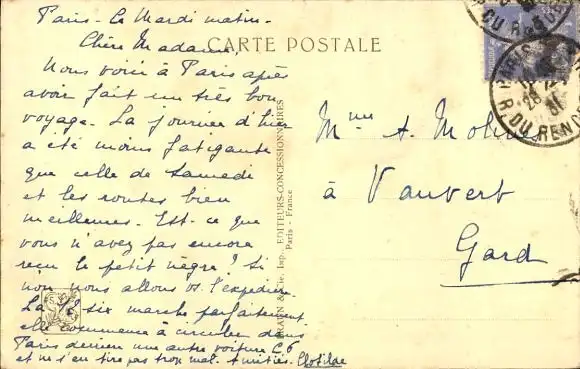 Paris - Le Mardi matin -
Chère Madame,
CARTE POSTALE
Nous voici à Paris après
avoir fait un très bon
voyage. La journée d'hier
a été moins fatigante
que celle de Samedi
et les routes bien
meilleures. Est-ce que
vous n'avez pas encore
reçu le petit nègre? Si
non nous allons vs. l'expédier.
La six marche parfaitement
elle commence à circuler dans
Paris derrière une autre voiture C6
et ne s'en tire pas trop mal. Amitiés. Clotilde
BRAUN & Cie, Imp. EDITEURS-CONCESSIONNAIRES
Paris - France
Mme A. Moline
à Vauvert
Gard
PARIS
28
31
R. DU REND
DU R